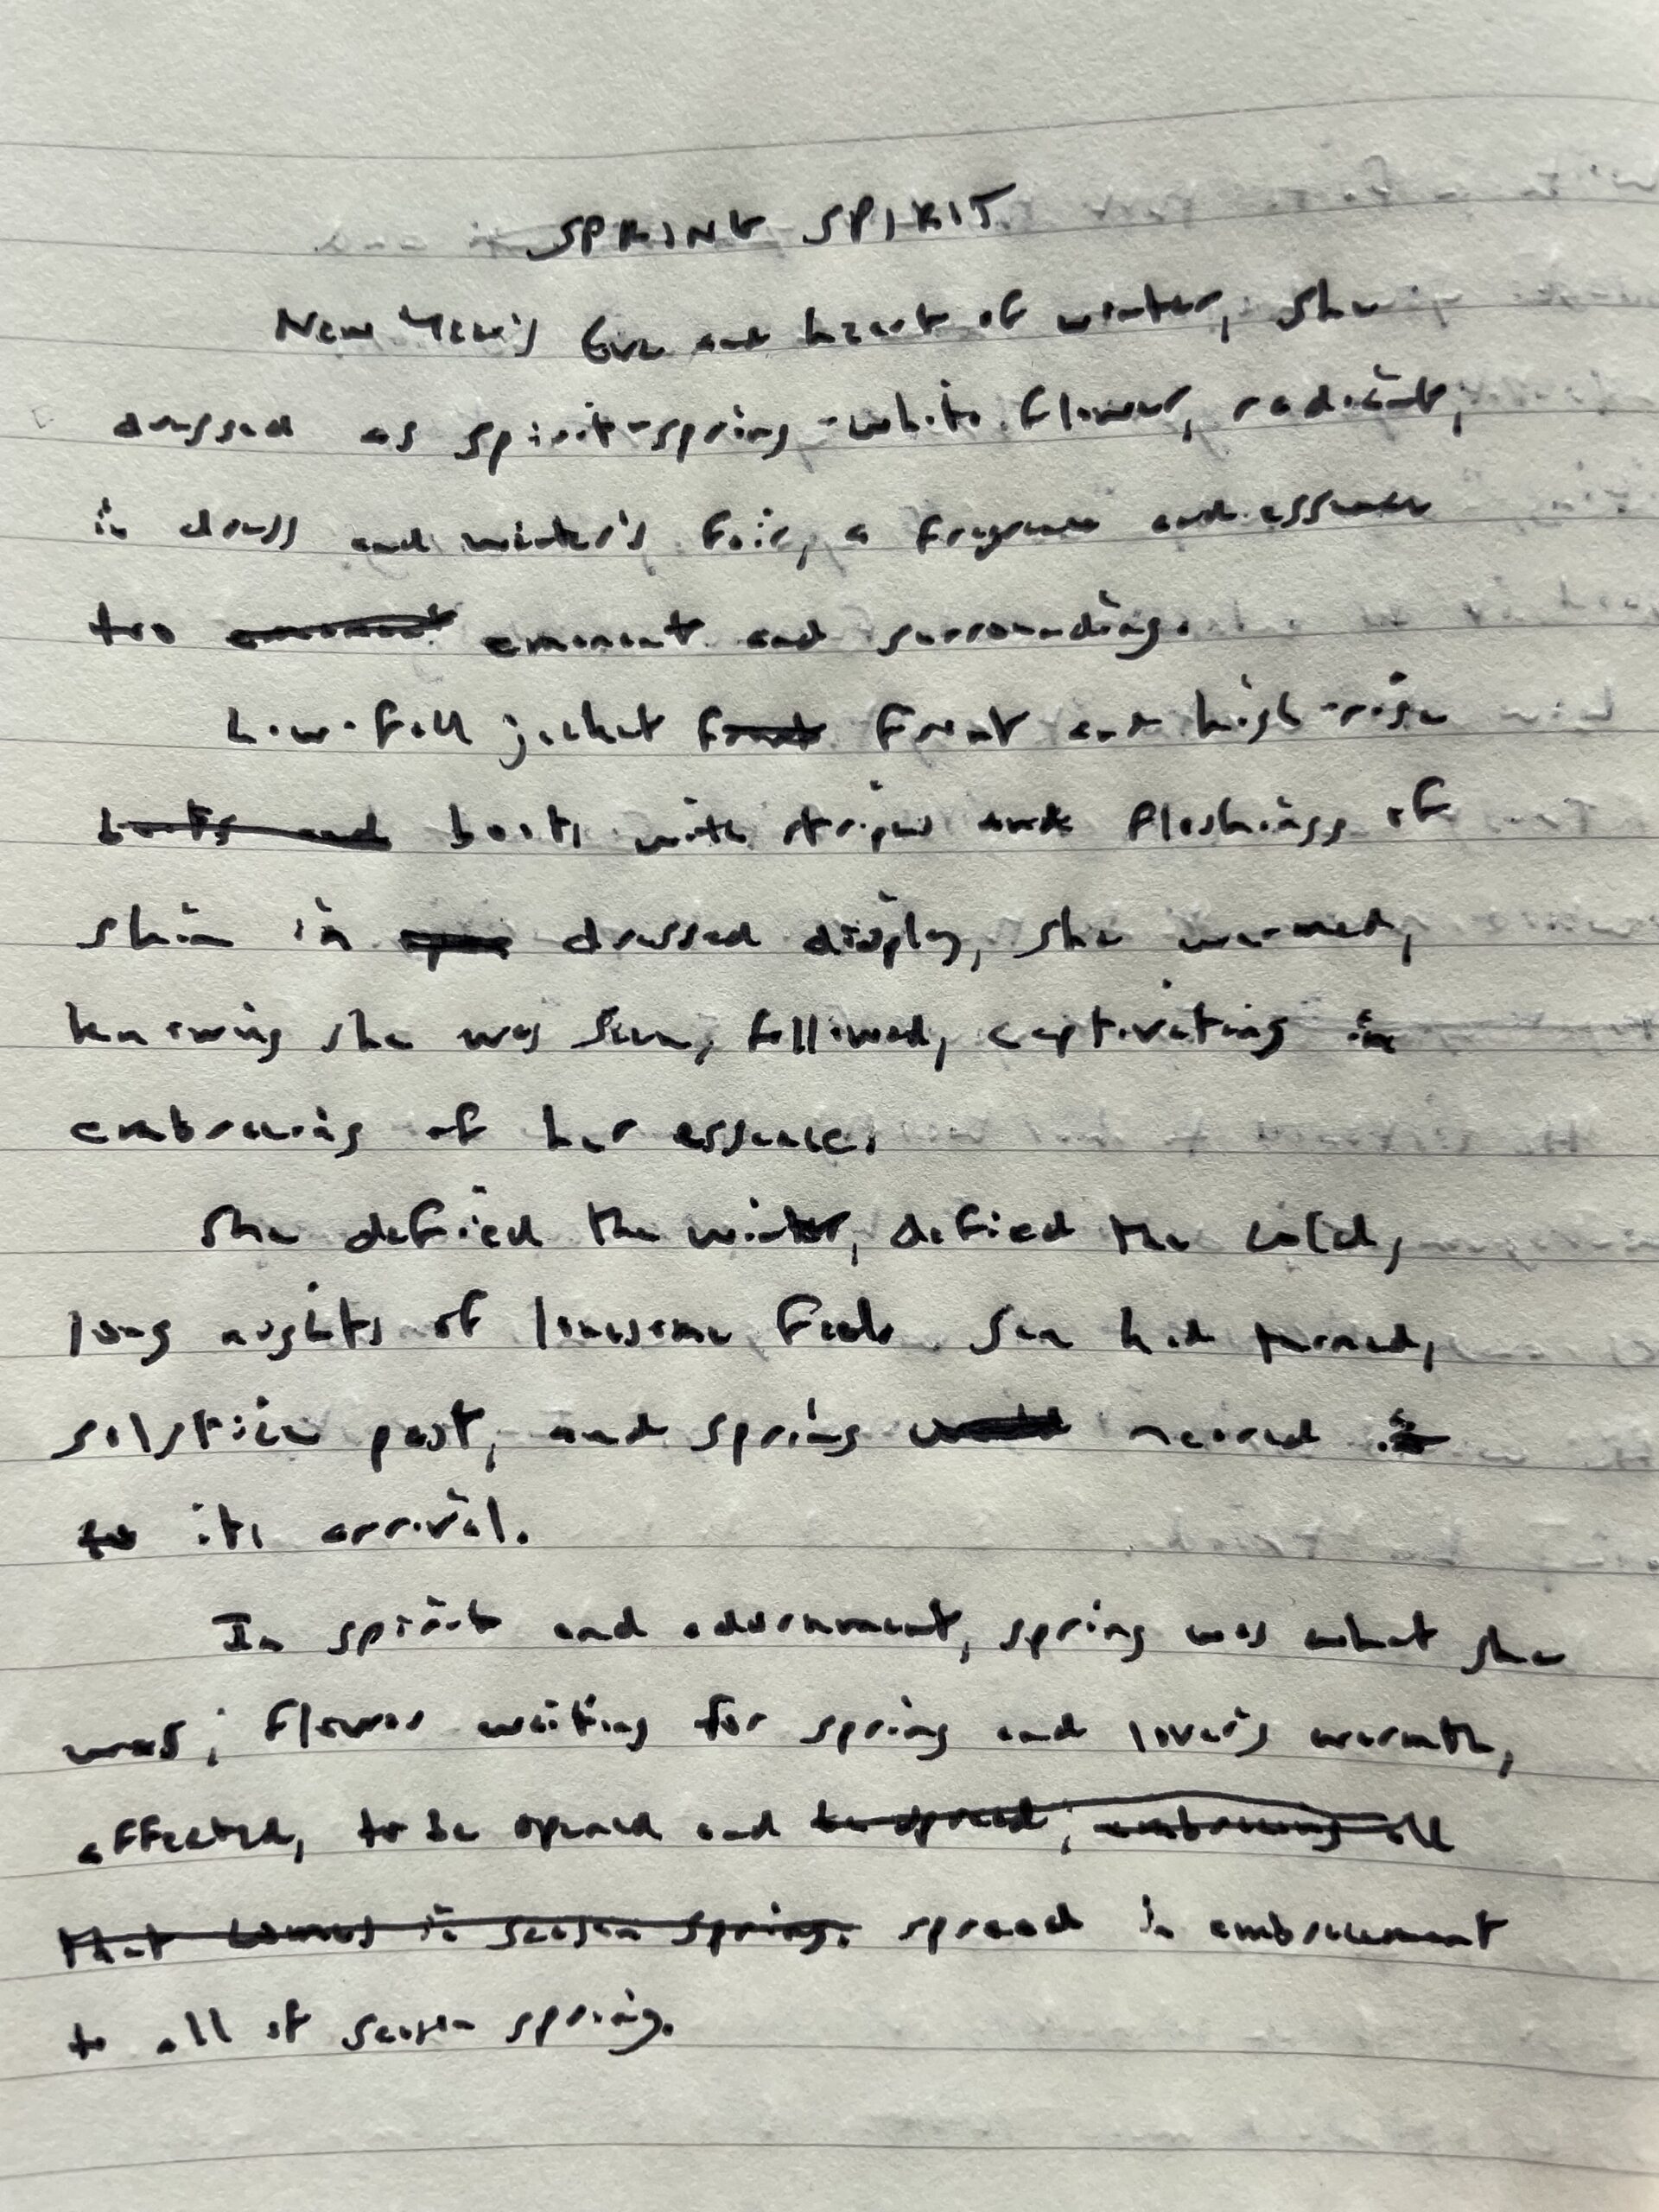 SPRING SPIRIT
New Year's Eve and heart of winter, she
dressed as spirit-spring - white flower, radiant,
in dress and winter's fair, a fragrance and essence
too eminent and surrounding.
Low-fall jacket front and high-rise
boots and boots with stripes and flashings of
skin in dressed display, she warmed,
knowing she was seen, followed, captivating in
embracing of her essence.
She defied the winter, defied the cold,
long nights of lonesome feels. Sun had turned,
solstice past, and spring would neared in
to its arrival.
In spirit and adornment, spring was what she
was; flower waiting for spring and lover's warmth,
affected, to be opened and be spread, embracing all
that comes in season spring. spread in embracement
to all of season spring.